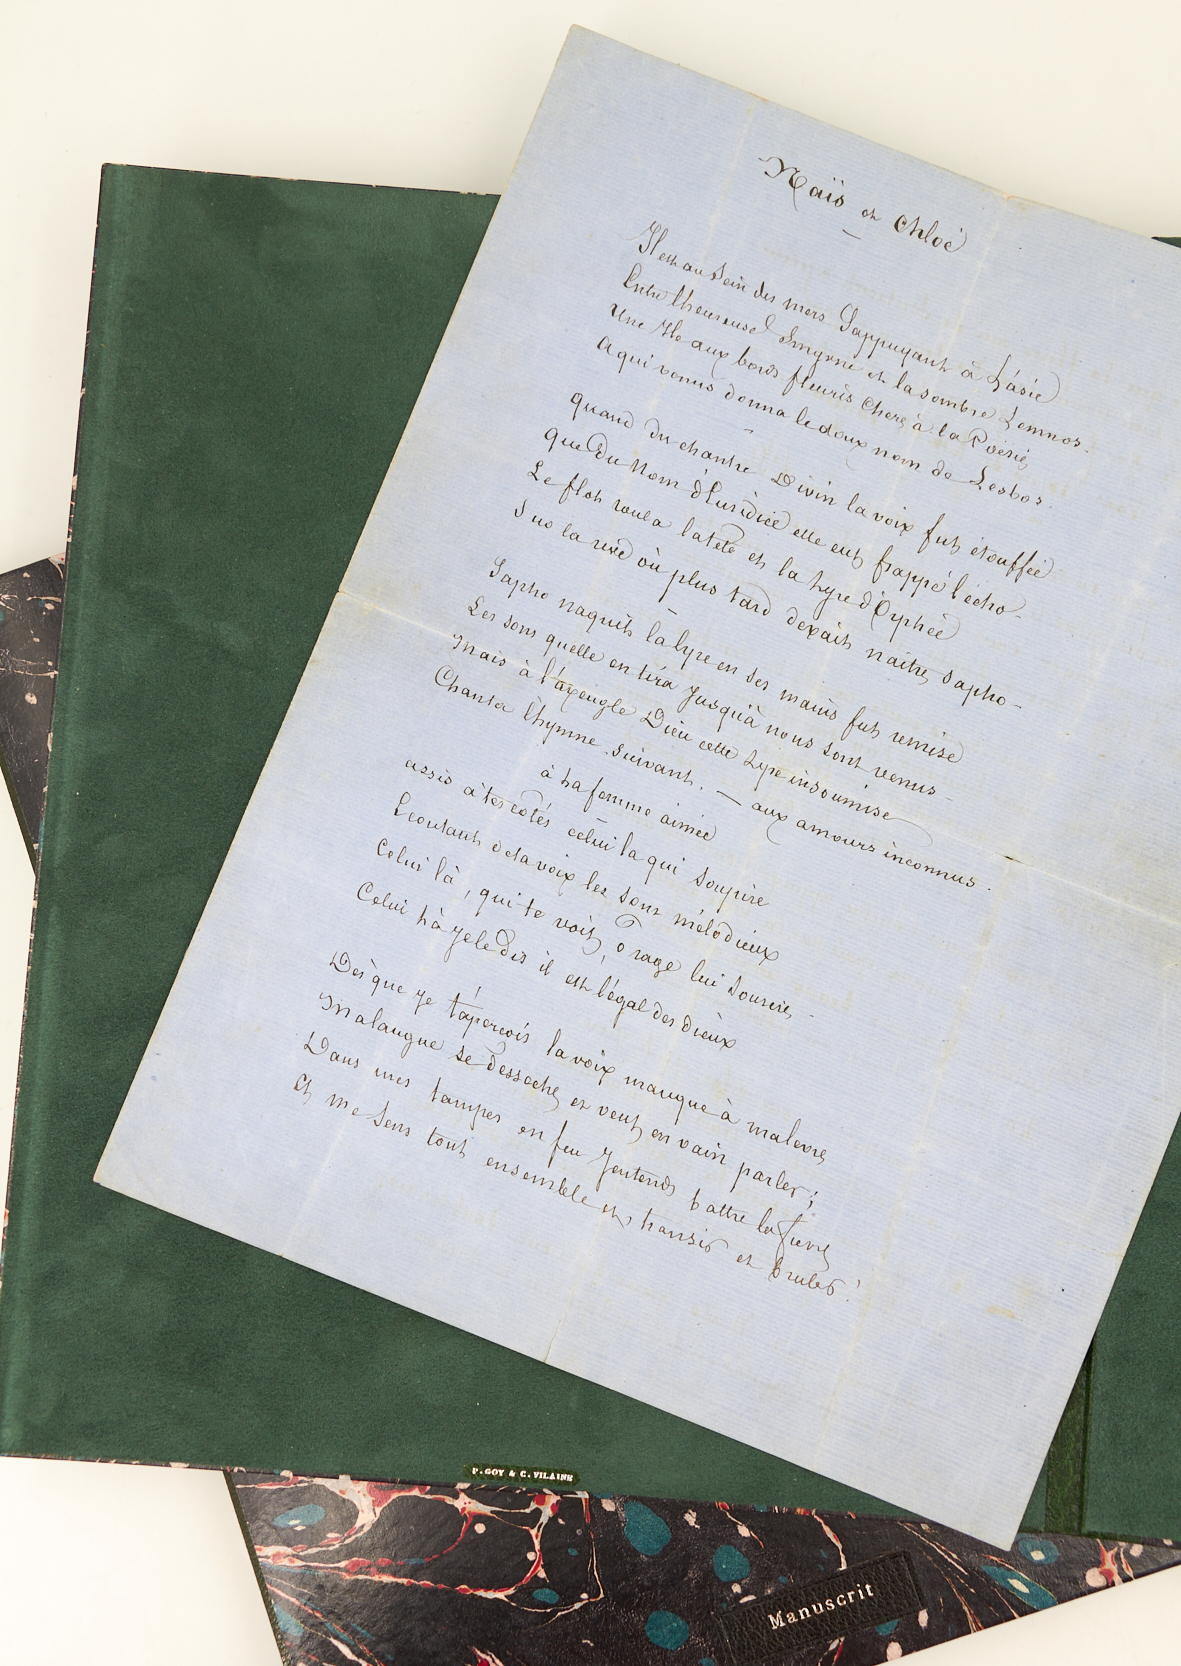 Naïs et Chloé
Il est au sein des mers S'appuyant à L'asie
Entre l'heureuse Smyrne et la sombre Lemnos.
Une Ile aux bords fleuris Chere à la Poésie
A qui venus donna le doux nom de Lesbos.
quand du chantre Divin la voix fut étouffée
que du Nom d'Euridice elle eut frappé l'écho
Le flot roula la tete et la Lyre d'Orphée
Sur la rive où plus tard devait naitre Sapho -
Sapho naquit la lyre en ses mains fut remise
Les sons quelle en tira Jusqu'à nous sont venus -
Mais à l'aveugle Dieu cette Lyre insoumise
Chanta l'hymne suivant. — aux amours inconnus.
à La femme aimée
assis à tes cotés celui la qui soupire
Ecoutant de ta voix les sons mélodieux
Celui là, qui te voit, o rage lui sourire,
Celui là Je le dis il est l'égal des dieux
Des que je t'aperçois la voix manque à ma levre
Ma langue se desseche et veut en vain parler;
Dans mes tempes en feu J'entends battre la fievre
Et me sens tout ensemble et transir et bruler!
P. GOY & C. VILAINE
Manuscrit